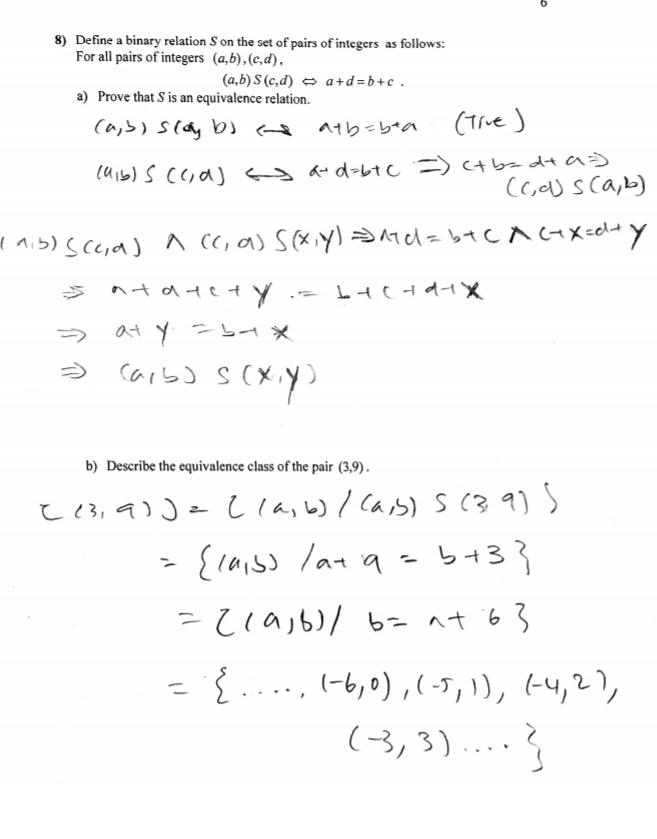 6
8) Define a binary relation S on the set of pairs of integers as follows:
For all pairs of integers (a,b),(c,d),
(a,b) S (c,d) ⇔ a+d=b+c .
a) Prove that S is an equivalence relation.
(a,b) S (a, b) ↔ a+b=b+a (True)
(a,b) S (c,d) ↔ a+d=b+c ⇒ c+b=d+a ⇒
(c,d) S (a,b)
(a,b) S (c,d) ∧ (c,d) S (x,y) ⇒ a+d=b+c ∧ c+x=d+y
⇒ a+d+c+y = b+c+d+x
⇒ a+y = b+x
⇒ (a,b) S (x,y)
b) Describe the equivalence class of the pair (3,9).
[(3,9)] = {(a,b) / (a,b) S (3,9)}
= {(a,b) / a+9 = b+3}
= {(a,b) / b = a+6}
= {...., (-6,0), (-5,1), (-4,2),
(-3,3) ....}